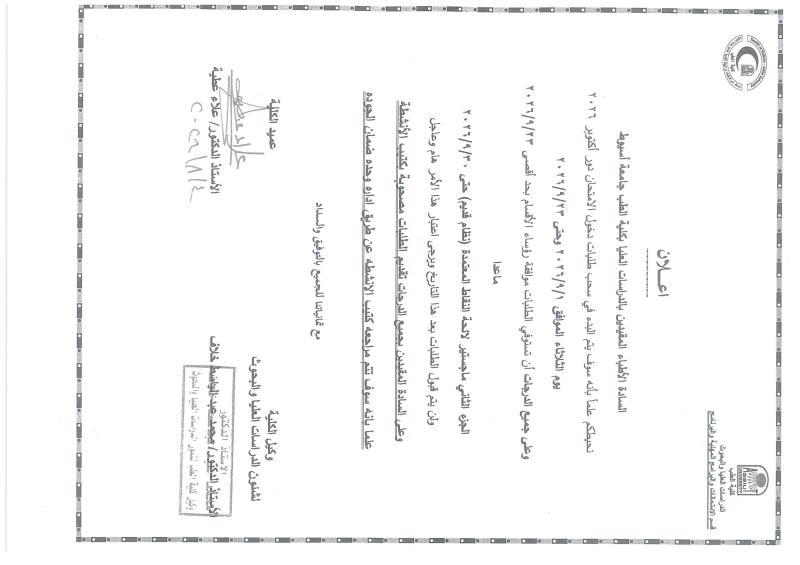 كلية الطب
الدراسات العليا والبحوث
قسم الامتحانات والبرامج المهنية والبرنامج
اعــلان
السادة الأطباء المقيدين بالدراسات العليا بكلية الطب جامعة أسيوط
نحيطكم علماً بأنه سوف يتم البدء في سحب طلبات دخول الامتحان دور أكتوبر ٢٠٢٦
يوم الثلاثاء الموافق ٢٠٢٦/٩/١ وحتى ٢٠٢٦/٩/٢٣
وعلى جميع الدرجات أن تستوفي الطلبات موافقة رؤساء الأقسام بحد أقصى ٢٠٢٦/٩/٢٣
ماعدا
الجزء الثاني ماجستير لائحة النقاط المعتمدة (نظام قديم) حتى ٢٠٢٦/٩/٣٠
ولن يتم قبول الطلبات بعد هذا التاريخ ويرجى اعتبار هذا الأمر هام وعاجل
وعلى السادة المقيدين بجميع الدرجات تقديم الطلبات مصحوبة بكتيب الأنشطة
علما بانه سوف تتم مراجعه كتيب الانشطه عن طريق اداره وحده ضمان الجوده
مع تمنياتنا للجميع بالتوفيق والسداد
وكيل الكلية
لشئون الدراسات العليا والبحوث
الأستاذ الدكتور/ محمد عبدالباسط خلاف
الاستاذ الدكتور
وكيل كلية الطب لشئون الدراسات العليا والبحوث
عميد الكلية
الأستاذ الدكتور/ علاء عطية